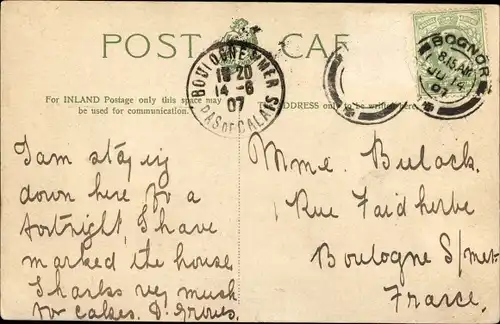 POST CAR
BOULOGNE S MER
18 20
14 - 6
07
PAS DE CALAIS
BOGNOR
8.15 AM
JU 14
07
For INLAND Postage only this space may
be used for communication.
THE ADDRESS only to be written here.
I am staying
down here for a
fortnight, I have
marked the house
Thanks very much
for cakes. D. Groves.
Mme. Bulock.
Rue Faidherbe
Boulogne S/mer
France.